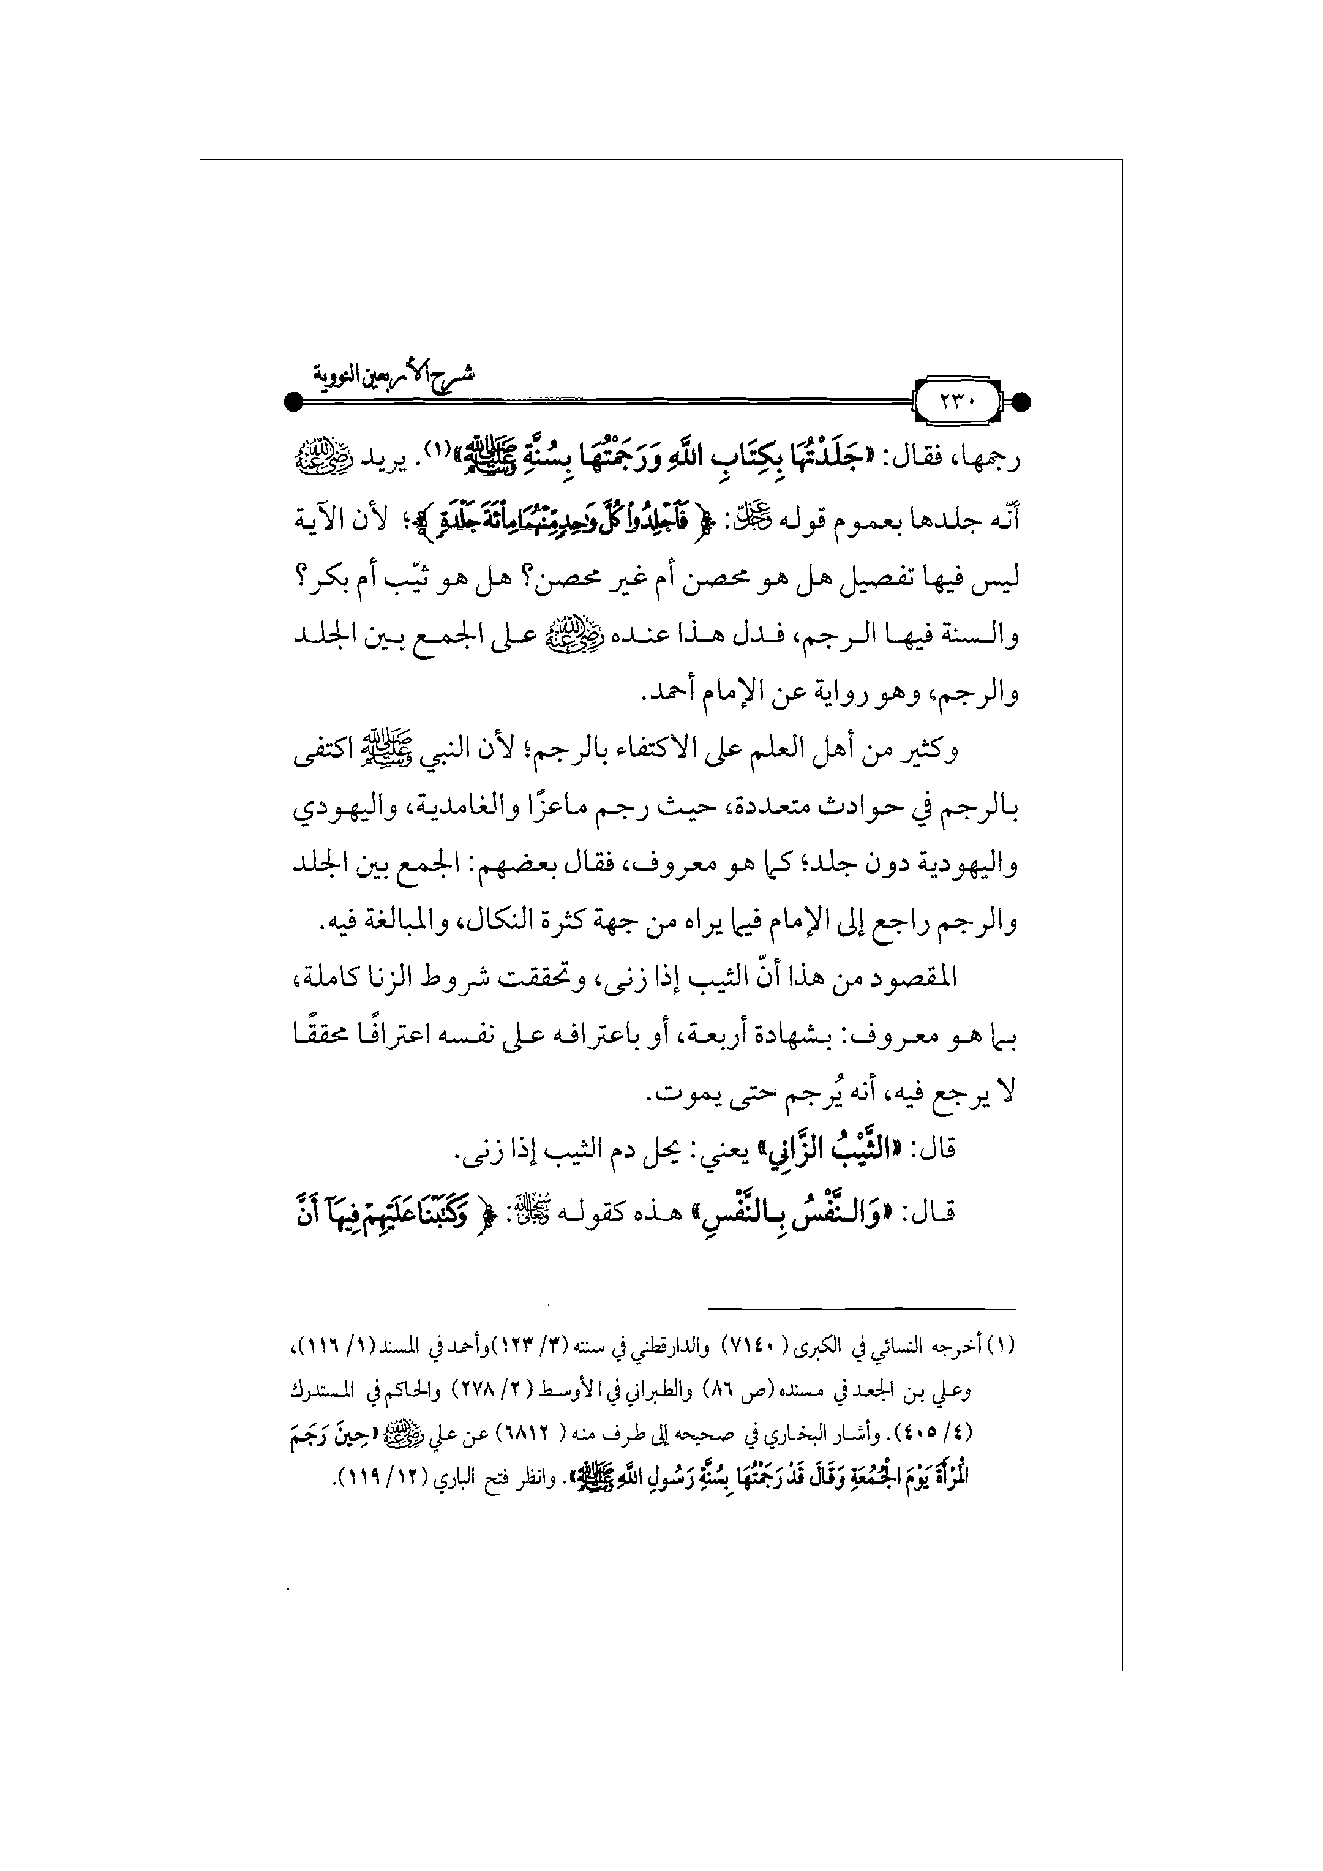 شرح الأربعين النووية
٢٣٠
رجمها، فقال: «جَلَدْتُهَا بِكِتَابِ اللَّهِ وَرَجَمْتُهَا بِسُنَّةِ ﷺ»(١). يريد رضي الله عنه
أنّه جلدها بعموم قوله عز وجل: ﴿فَاجْلِدُوا كُلَّ وَاحِدٍ مِنْهُمَا مِائَةَ جَلْدَةٍ﴾؛ لأن الآية
ليس فيها تفصيل هل هو محصن أم غير محصن؟ هل هو ثيّب أم بكر؟
والسنة فيها الرجم، فدل هذا عنده رضي الله عنه على الجمع بين الجلد
والرجم، وهو رواية عن الإمام أحمد.
وكثير من أهل العلم على الاكتفاء بالرجم؛ لأن النبي ﷺ اكتفى
بالرجم في حوادث متعددة، حيث رجم ماعزًا والغامدية، واليهودي
واليهودية دون جلد؛ كما هو معروف، فقال بعضهم: الجمع بين الجلد
والرجم راجع إلى الإمام فيما يراه من جهة كثرة النكال، والمبالغة فيه.
المقصود من هذا أنّ الثيب إذا زنى، وتحققت شروط الزنا كاملة،
بما هو معروف: بشهادة أربعة، أو باعترافه على نفسه اعترافًا محققًا
لا يرجع فيه، أنه يُرجم حتى يموت.
قال: «الثَّيِّبُ الزَّانِي» يعني: يحل دم الثيب إذا زنى.
قال: «وَالنَّفْسُ بِالنَّفْسِ» هذه كقوله سبحانه: ﴿وَكَتَبْنَا عَلَيْهِمْ فِيهَا أَنَّ
(١) أخرجه النسائي في الكبرى (٧١٤٠) والدارقطني في سننه (٣/ ١٢٣) وأحمد في المسند (١/ ١١٦)،
وعلي بن الجعد في مسنده (ص ٨٦) والطبراني في الأوسط (٢/ ٢٧٨) والحاكم في المستدرك
(٤/ ٤٠٥). وأشار البخاري في صحيحه إلى طرف منه (٦٨١٢) عن علي رضي الله عنه «حِينَ رَجَمَ
الْمَرْأَةَ يَوْمَ الْجُمُعَةِ وَقَالَ قَدْ رَجَمْتُهَا بِسُنَّةِ رَسُولِ اللَّهِ ﷺ». وانظر فتح الباري (١٢/ ١١٩).